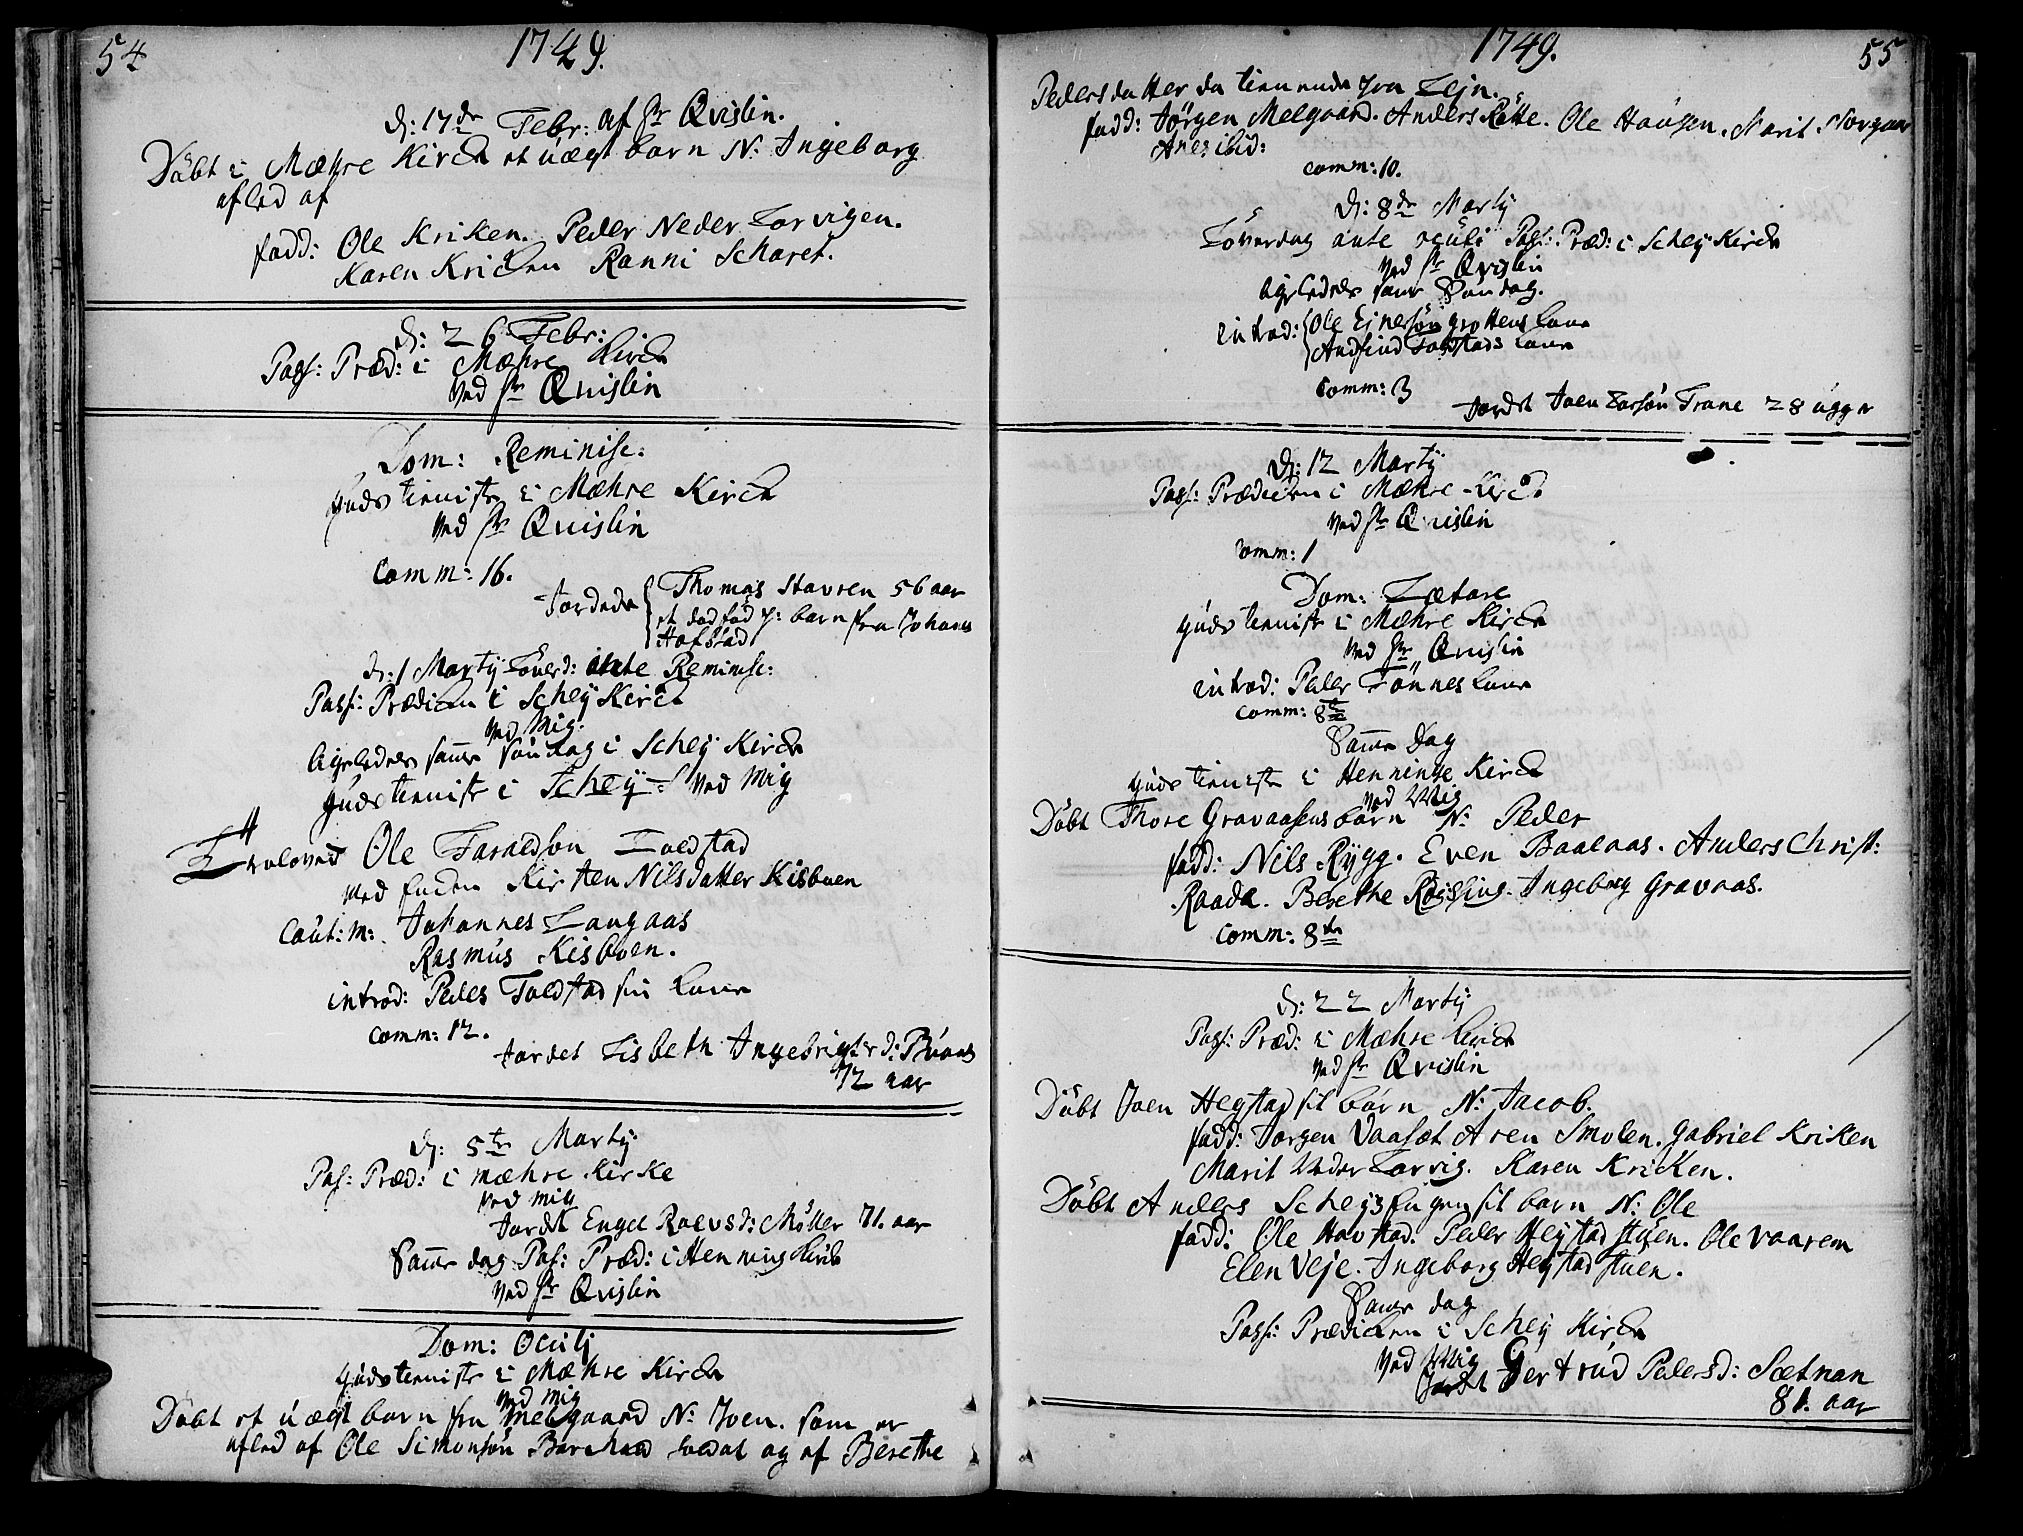 54
1749.
d: 17de Febr: af Hr Qvislin.
Döbt i Mæhre Kirche et uægt barn N: Ingeborg
afled af
fadd: Ole Kriken. Peder Neder Torvigen.
Karen Krichen Ranni Scharet.
d: 26 Febr:
Pass: Præd: i Mæhre Kirche
ved Hr Qvislin
Dom: Reminisc:
Guds tieniste i Mæhre Kirche
ved Hr Qvislin
Comm: 16.
Jordede Thomas Stavren 56 aar
et död föd p: barn fra Johans
Hofstad
d: 1 Martij Löverd: ante Reminisc:
Pass: Prædichen i Scheij Kirche
ved Mig.
ligeledes samme söndag i Scheij Kirche
Guds tieniste i Scheij ved Mig
Troloved Ole Taraldsön Foldstad
med Enchen Kirsten Nilsdatter Kisboen
Caut: M: Johannes Langaas
Rasmus Kisboen.
introd: Peder Foldstad sin Kone
comm: 12.
Jordet Lisbeth Ingebrigtsd: Buaas
72 aar
d: 5te Martij
Pas: Præd: i mæhre Kirke
ved mig
Jordet Engel Roevsd: Möller 71. aar
Samme dag Pas: Præd: i Henning Kirche
ved Hr Qvislin
Dom: Oculj
Guds tieniste i Mæhre Kirche
ved mig
Döbt et uægt barn fra Melgaard N: Joen. som er
afled af Ole Simonsön soldat og af Berethe
1749.
55
Pedersdatter da tienende fra Lejn.
fadd: Jörgen Melgaard. Anders Rötte. Ole Haugen. Marit
ibid:
comm: 10.
d: 8de Martij
Löverdag ante oculi Pass: Præd: i Scheij Kirche
ved Hr Qvislin
ligeledes samme Söndag.
introd: Ole Ejnersön Grottens Kone
Andfind Kone
Comm: 3
Jordet Joen Larsön Trane 28 uger
d: 12 Martij
Pass: Prædichen i Mæhre Kirche
ved Hr Qvislin
Comm: 1
Dom: Lætare
Guds tieniste i Mæhre Kirche
ved Hr Qvislin
introd: Peder Tönnes Kone
Comm: 8te
Samme Dag
Guds tieniste i Henninge Kirche
ved Mig
Döbt Thore Gravaasens barn N: Peder
fadd: Nils Rygg. Even Baalaas. Anders Christ:
Raada. Berethe Røising. Ingeborg Gravaas.
Comm: 8te
d: 22 Martij
Pass: Præd: i Mæhre Kirche
ved Hr Qvislin
Döbt Joen Hegstad sit barn N: Jacob.
fadd: Jorgen Vaaset Aren Smolen. Gabriel Kriken
Marit Neder Torvig. Karen Kricken.
Döbt Anders sit barn N: Ole
fadd: Ole Havstad. Peder Hegstad stuen. Ole Vaarem
Elen Veje. Ingeborg Hegstad stuen.
Samme dag
Pass: Prædichen i Scheij Kirche
ved Mig
Jordet Gertrud Pedersd: Sætnan
81. aar